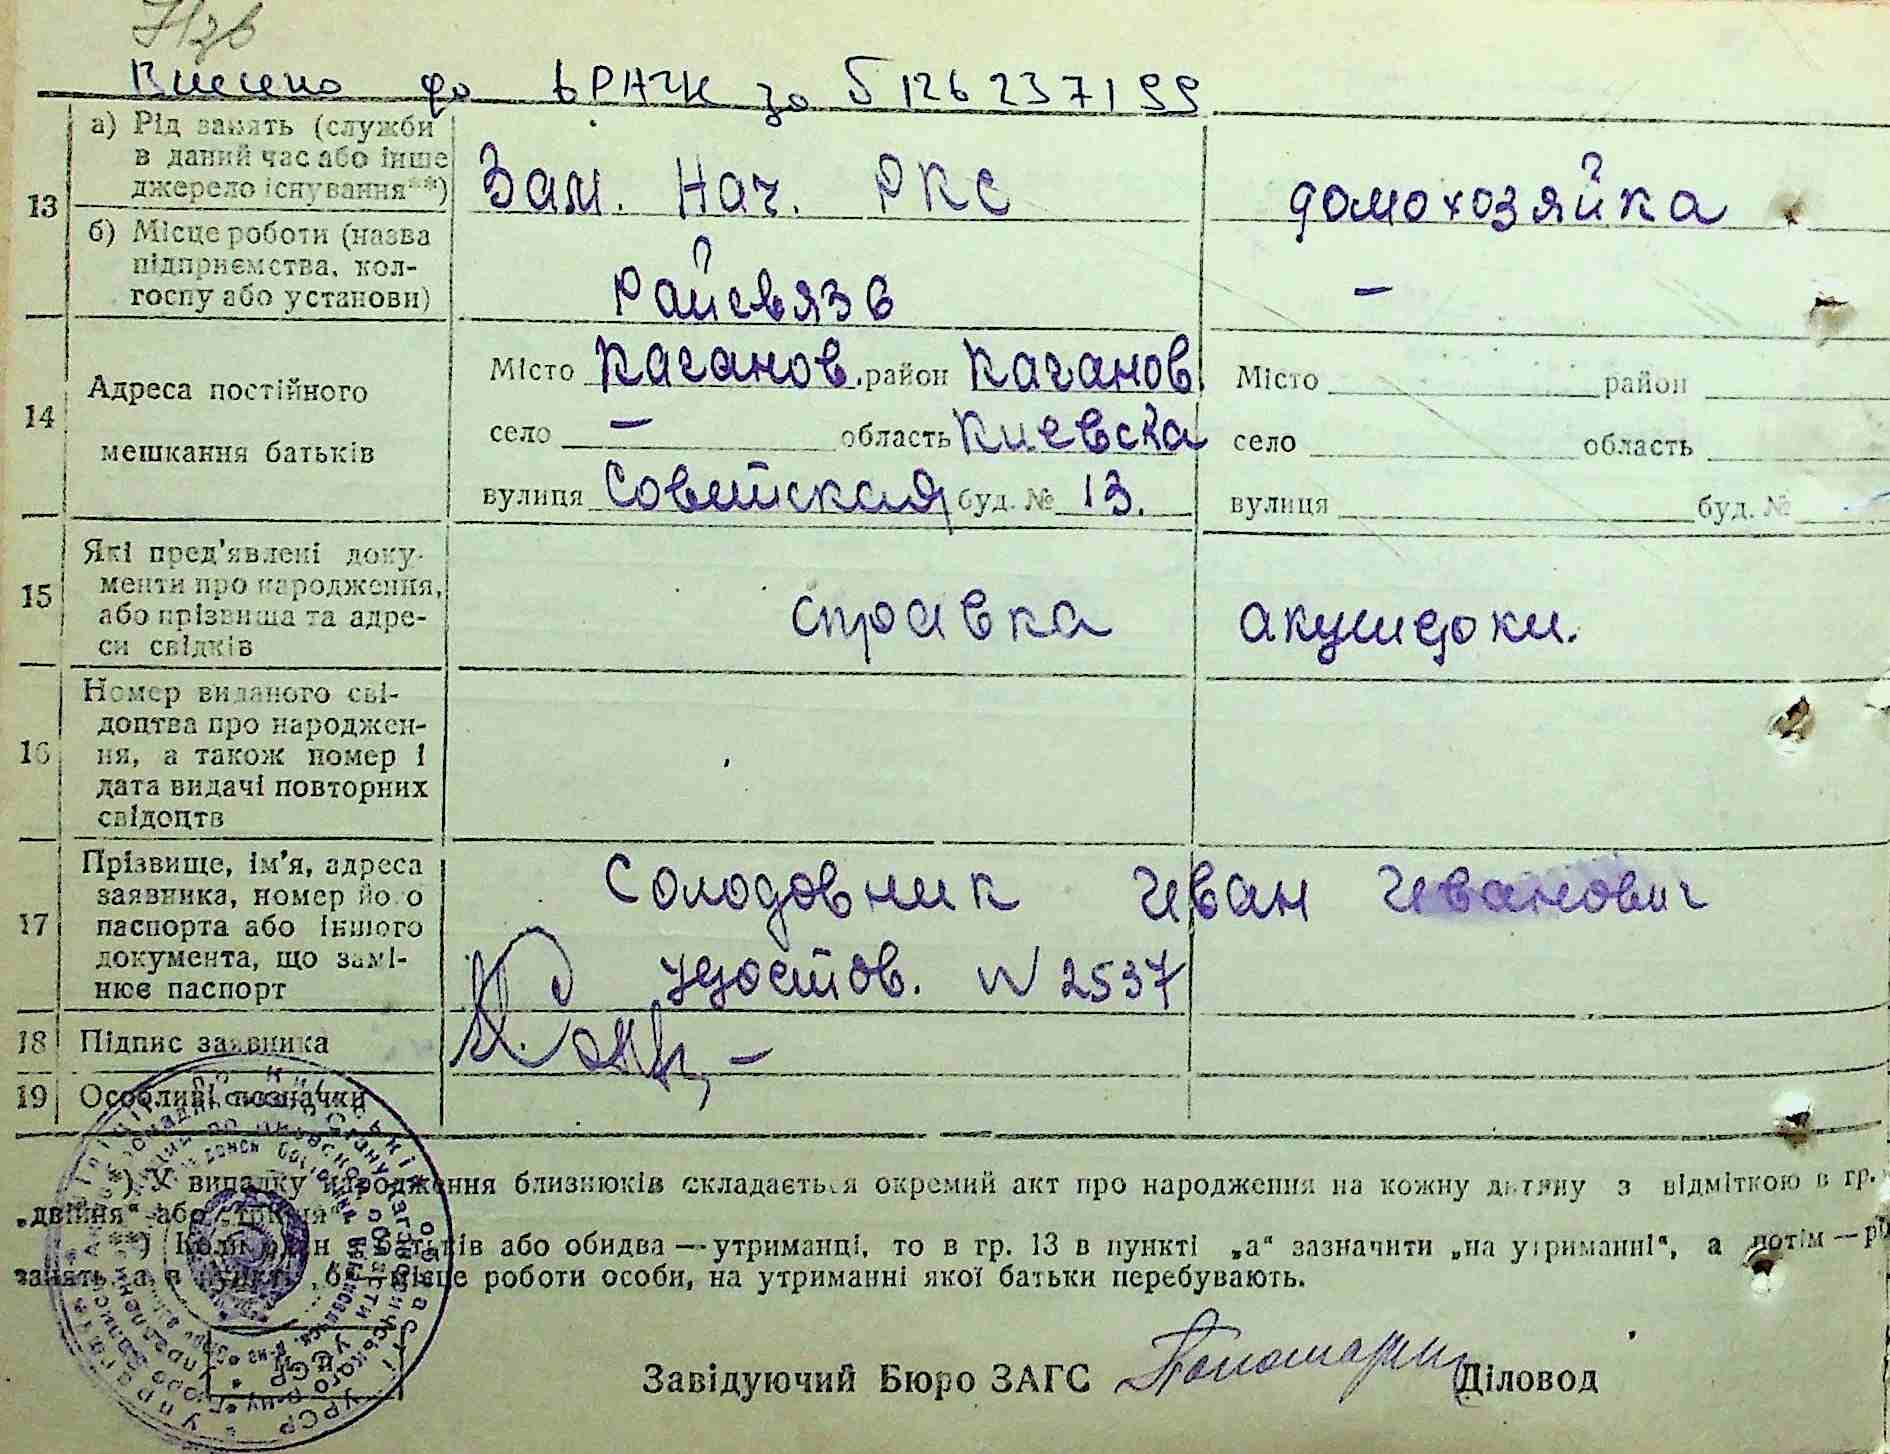 Внесено до ЄРАЧК за 5126237199
13
а) Рід занять (служби в даний час або інше джерело існування**)
Зам. Нач. РКС
домохозяйка
б) Місце роботи (назва підприємства, колгоспу або установи)
Райсвязь
—
14
Адреса постійного мешкання батьків
Місто Каганов. район Каганов
село — область Киевска
вулиця Советская буд. № 13.
Місто район
село область
вулиця буд. №
15
Які пред'явлені документи про народження, або прізвища та адреси свідків
справка акушерки.
16
Номер виданого свідоцтва про народження, а також номер і дата видачі повторних свідоцтв
17
Прізвище, ім'я, адреса заявника, номер його паспорта або іншого документа, що замінює паспорт
Солодовник Иван Иванович
удостов. N 2537
18
Підпис заявника
19
Особливі позначки
*) У випадку народження близнюків складається окремий акт про народження на кожну дитину з відміткою в гр.
„двійня“ або „трійня“
**) Коли один з батьків або обидва — утриманці, то в гр. 13 в пункті „а“ зазначити „на утриманні“, а потім — рід
занять, а в пункті „б“ місце роботи особи, на утриманні якої батьки перебувають.
Завідуючий Бюро ЗАГС Діловод